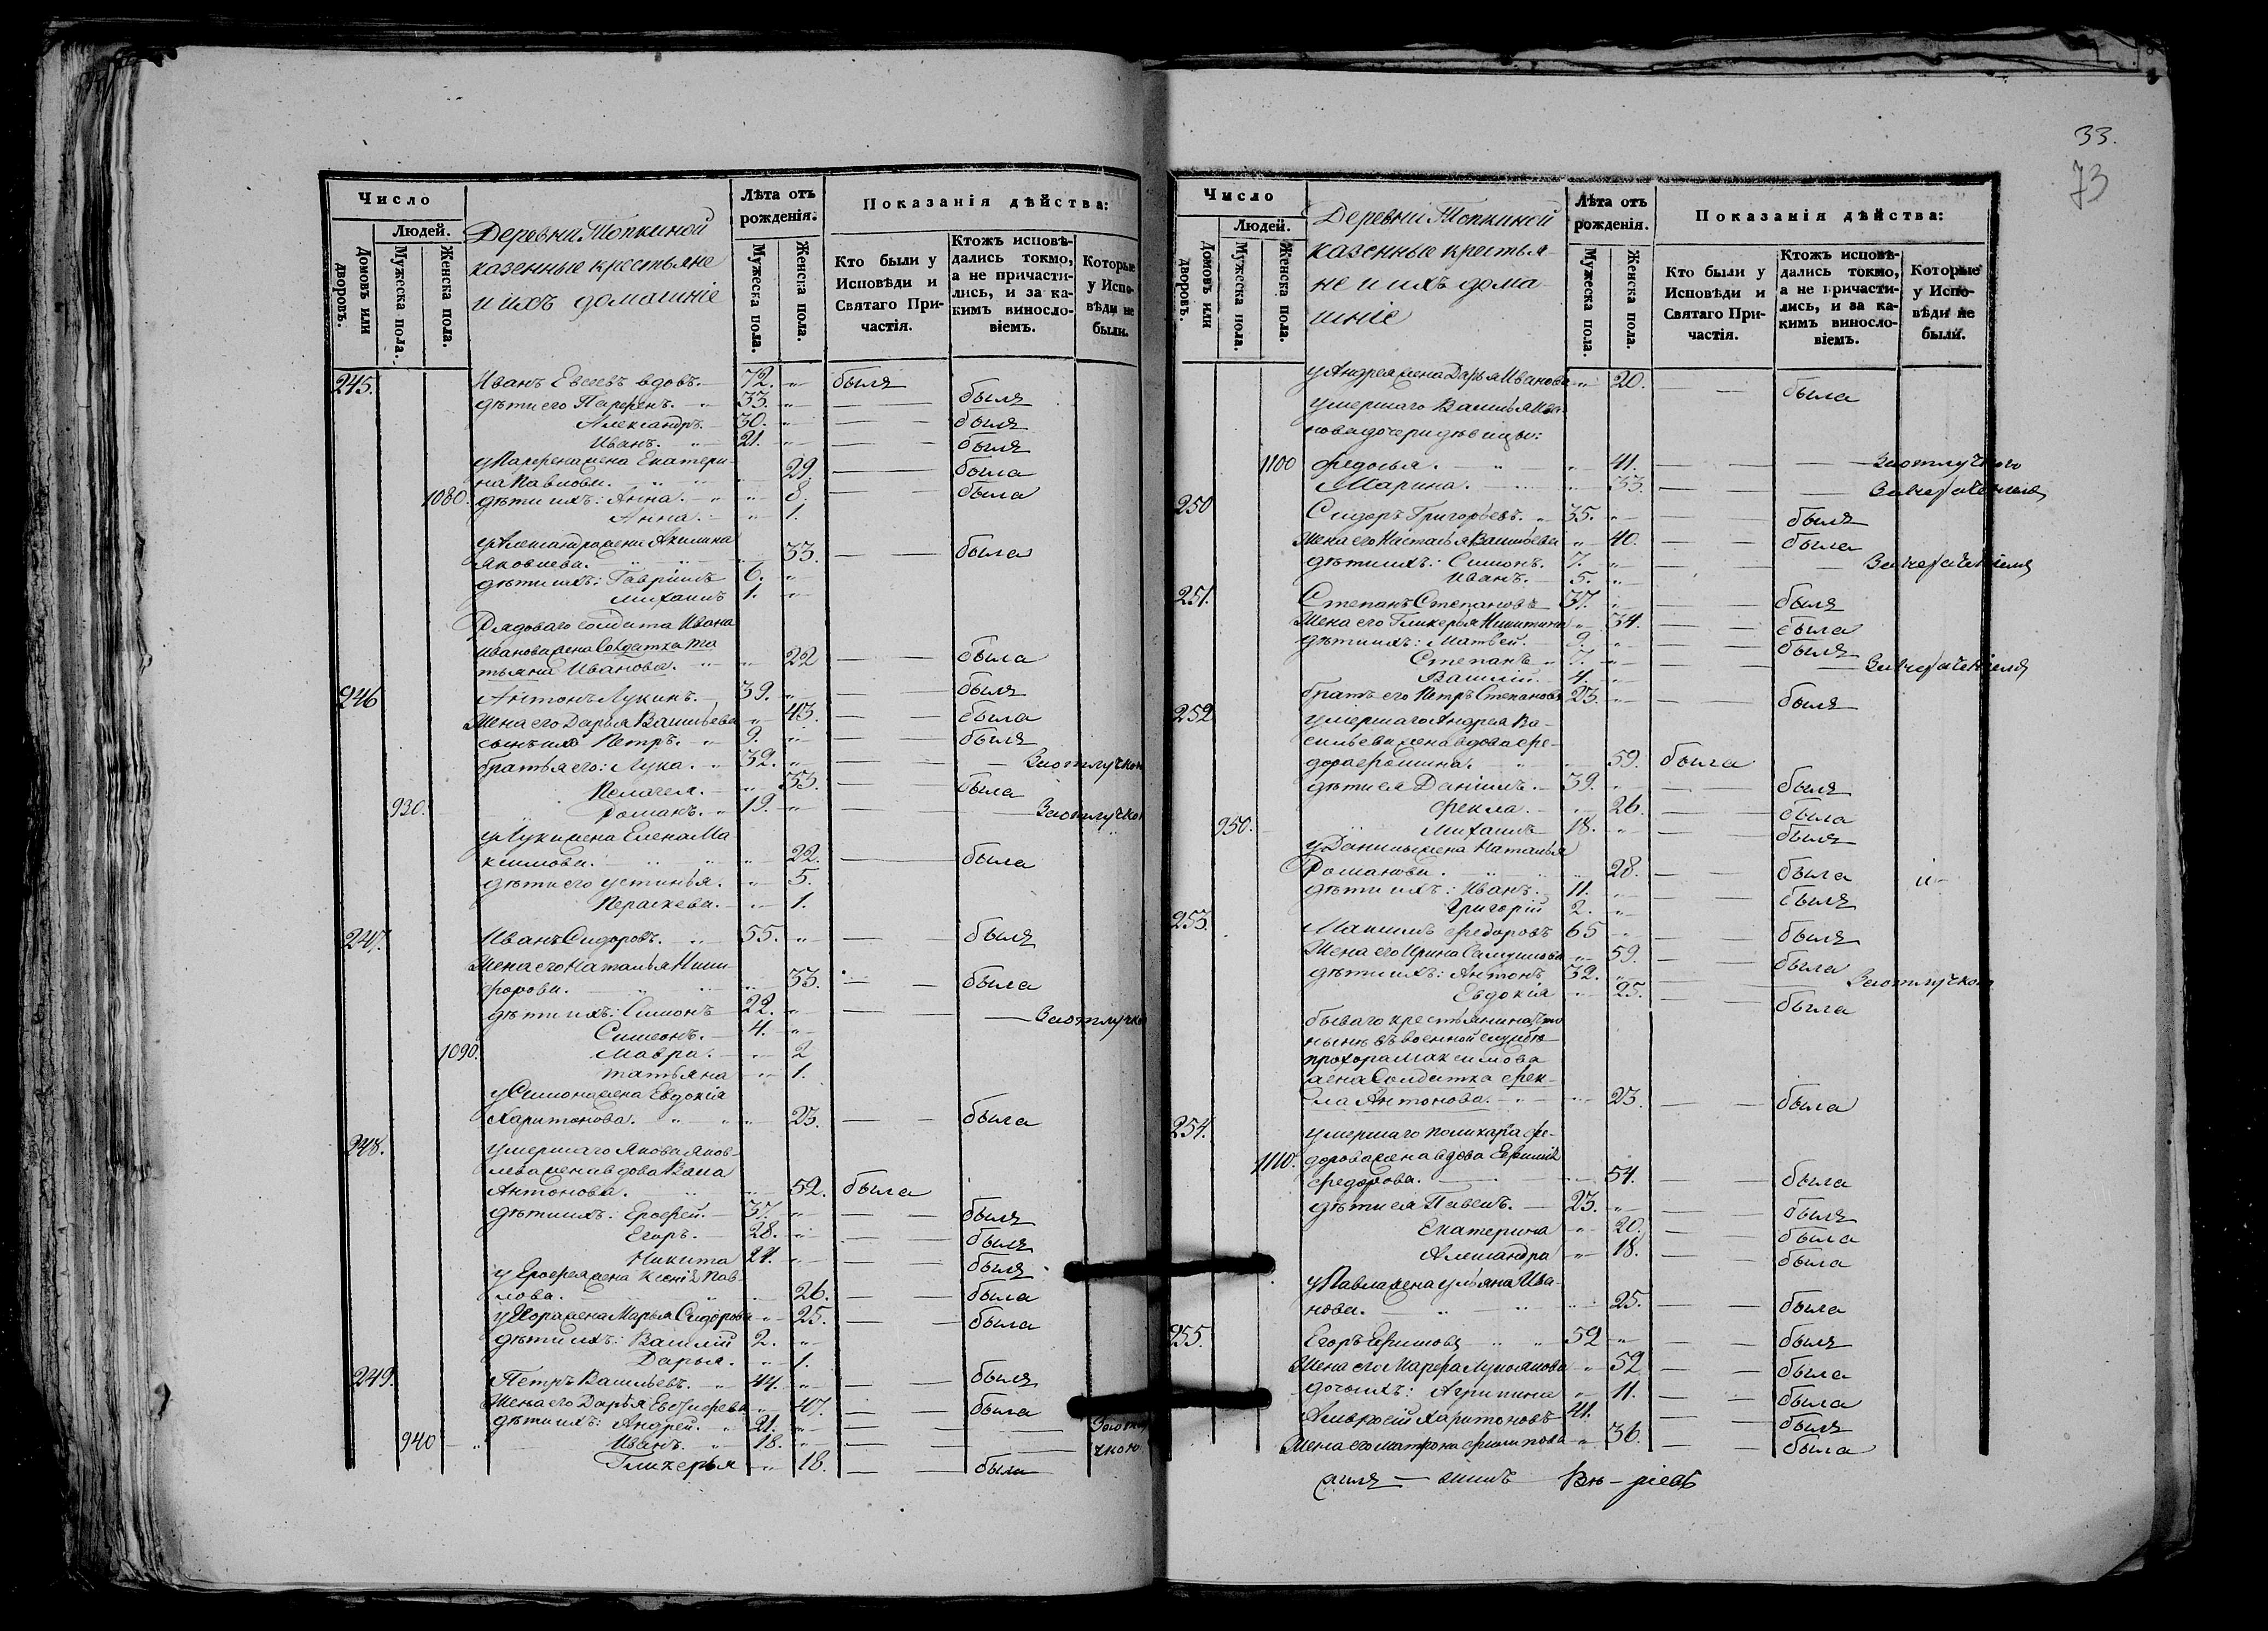 Число
Людей.
Домовъ или дворовъ.
Мужеска пола.
Женска пола.
Деревни Топкиной
казенные крестьяне
и ихъ домашніе
Лѣта отъ рожденія.
Мужеска пола.
Женска пола.
Показанія дѣйства:
Кто были у Исповѣди и Святаго Причастія.
Ктожъ исповѣдались токмо, а не причастились, и за какимъ винословіемъ.
Которые у Исповѣди не были.
245. Иванъ Евсеевъ вдовъ. 72. былъ
дѣти его Парфенъ. 33. былъ
Александръ. 30. былъ
Иванъ. 21. былъ
у Парфена жена Екатери-
на Павлова. 29. была
1080. дѣти ихъ: Анна. 8. была
Анна. 1.
у Александра жена Акилина
Яковлева. 33. была
дѣти ихъ: Гавріилъ 6.
Михаилъ 1.
Рядоваго солдата Ивана
Иванова жена Солдатка Та
тьяна Иванова. 22 была
246 Антонъ Лукинъ. 39. былъ
Жена его Дарья Васильева 43. была
сынъ ихъ Петръ. 9. былъ
братья его: Лука. 32. За отлучкою
Пелагея. 33. была
930. Романъ. 19. За отлучкою
у Луки жена Елена Ма
ксимова. 22. была
дѣти его Устинья. 5.
Параскева. 1.
247. Иванъ Сидоровъ. 55. былъ
Жена его Наталья Ники-
форова. 33. была
дѣти ихъ: Симонъ 22. За отлучкою
Симеонъ. 4.
1090. Мавра. 2
Татьяна 1.
у Симона жена Евдокія
Харитонова. 23. была
248. умершаго Якова Яков-
лева жена вдова Васа
Антонова. 52. была
дѣти ихъ: Ерофей. 37. былъ
Егоръ. 28. былъ
Никита 24. былъ
у Ерофея жена Ксенія Пав-
лова. 26. была
у Егора жена Марья Сидорова 25. была
дѣти ихъ: Василій 2.
Дарья. 1.
249. Петръ Васильевъ. 44. былъ
Жена его Дарья 47. была
дѣти ихъ: Андрей. 21. За отлу
940 Иванъ. 18. чкою
Гликерья 18. была
33.
73
Число
Людей.
Домовъ или дворовъ.
Мужеска пола.
Женска пола.
Деревни Топкиной
казенные крестья
не и ихъ дома
шніе
Лѣта отъ рожденія.
Мужеска пола.
Женска пола.
Показанія дѣйства:
Кто были у Исповѣди и Святаго Причастія.
Ктожъ исповѣдались токмо, а не причастились, и за какимъ винословіемъ.
Которые у Исповѣди не были.
у Андрея жена Дарья Иванова 20. была
умершаго Василья Ива
нова дочери дѣвицы:
1100 Федосья. 41. За отлучкою
Марина. 33. За нераченіемъ
250 Сидоръ Григорьевъ. 35. былъ
Жена его Настасья Васильева 40. была
дѣти ихъ: Симонъ. 7. За нераченіемъ
Иванъ. 5.
251. Степанъ Степановъ 37. былъ
Жена его Гликерья Никитина 34. была
дѣти ихъ: Матвей. 9. былъ
Степанъ 7. За нераченіемъ
Василій. 4.
братъ его Петръ Степановъ 23. былъ
252 умершаго Андрея Ва-
сильева жена вдова Фе-
дора Фомина. 59. была
дѣти ея Даніилъ. 39. былъ
Фекла. 26. была
950. Михаилъ 18. былъ
у Данилы жена Наталья
Романова. 28. была
дѣти ихъ: Иванъ. 11. былъ
Григорій 2.
253. Максимъ Федоровъ 65 былъ
Жена его Ирина Самуилова 59. была
дѣти ихъ: Антонъ 32. За отлучкою
Евдокія 25. была
бываго крестьянина что
нынѣ въ военной службѣ
Прохора Максимова
жена Солдатка Фек-
ла Антонова. 23. была
254. умершаго Поликарпа Фе-
1110. дорова жена вдова Евфимія
Федорова. 54. была
дѣти ея Павелъ. 23. былъ
Екатерина 20. была
Александра 18. была
у Павла жена Ульяна Ива-
нова. 25. была
255. Егоръ Ефимовъ 52 былъ
Жена его Марфа Лукьянова 52 была
дочь ихъ: Агрипина 11. была
Алексѣй Харитоновъ 41. былъ
Жена его Матрона Филипова 36. была